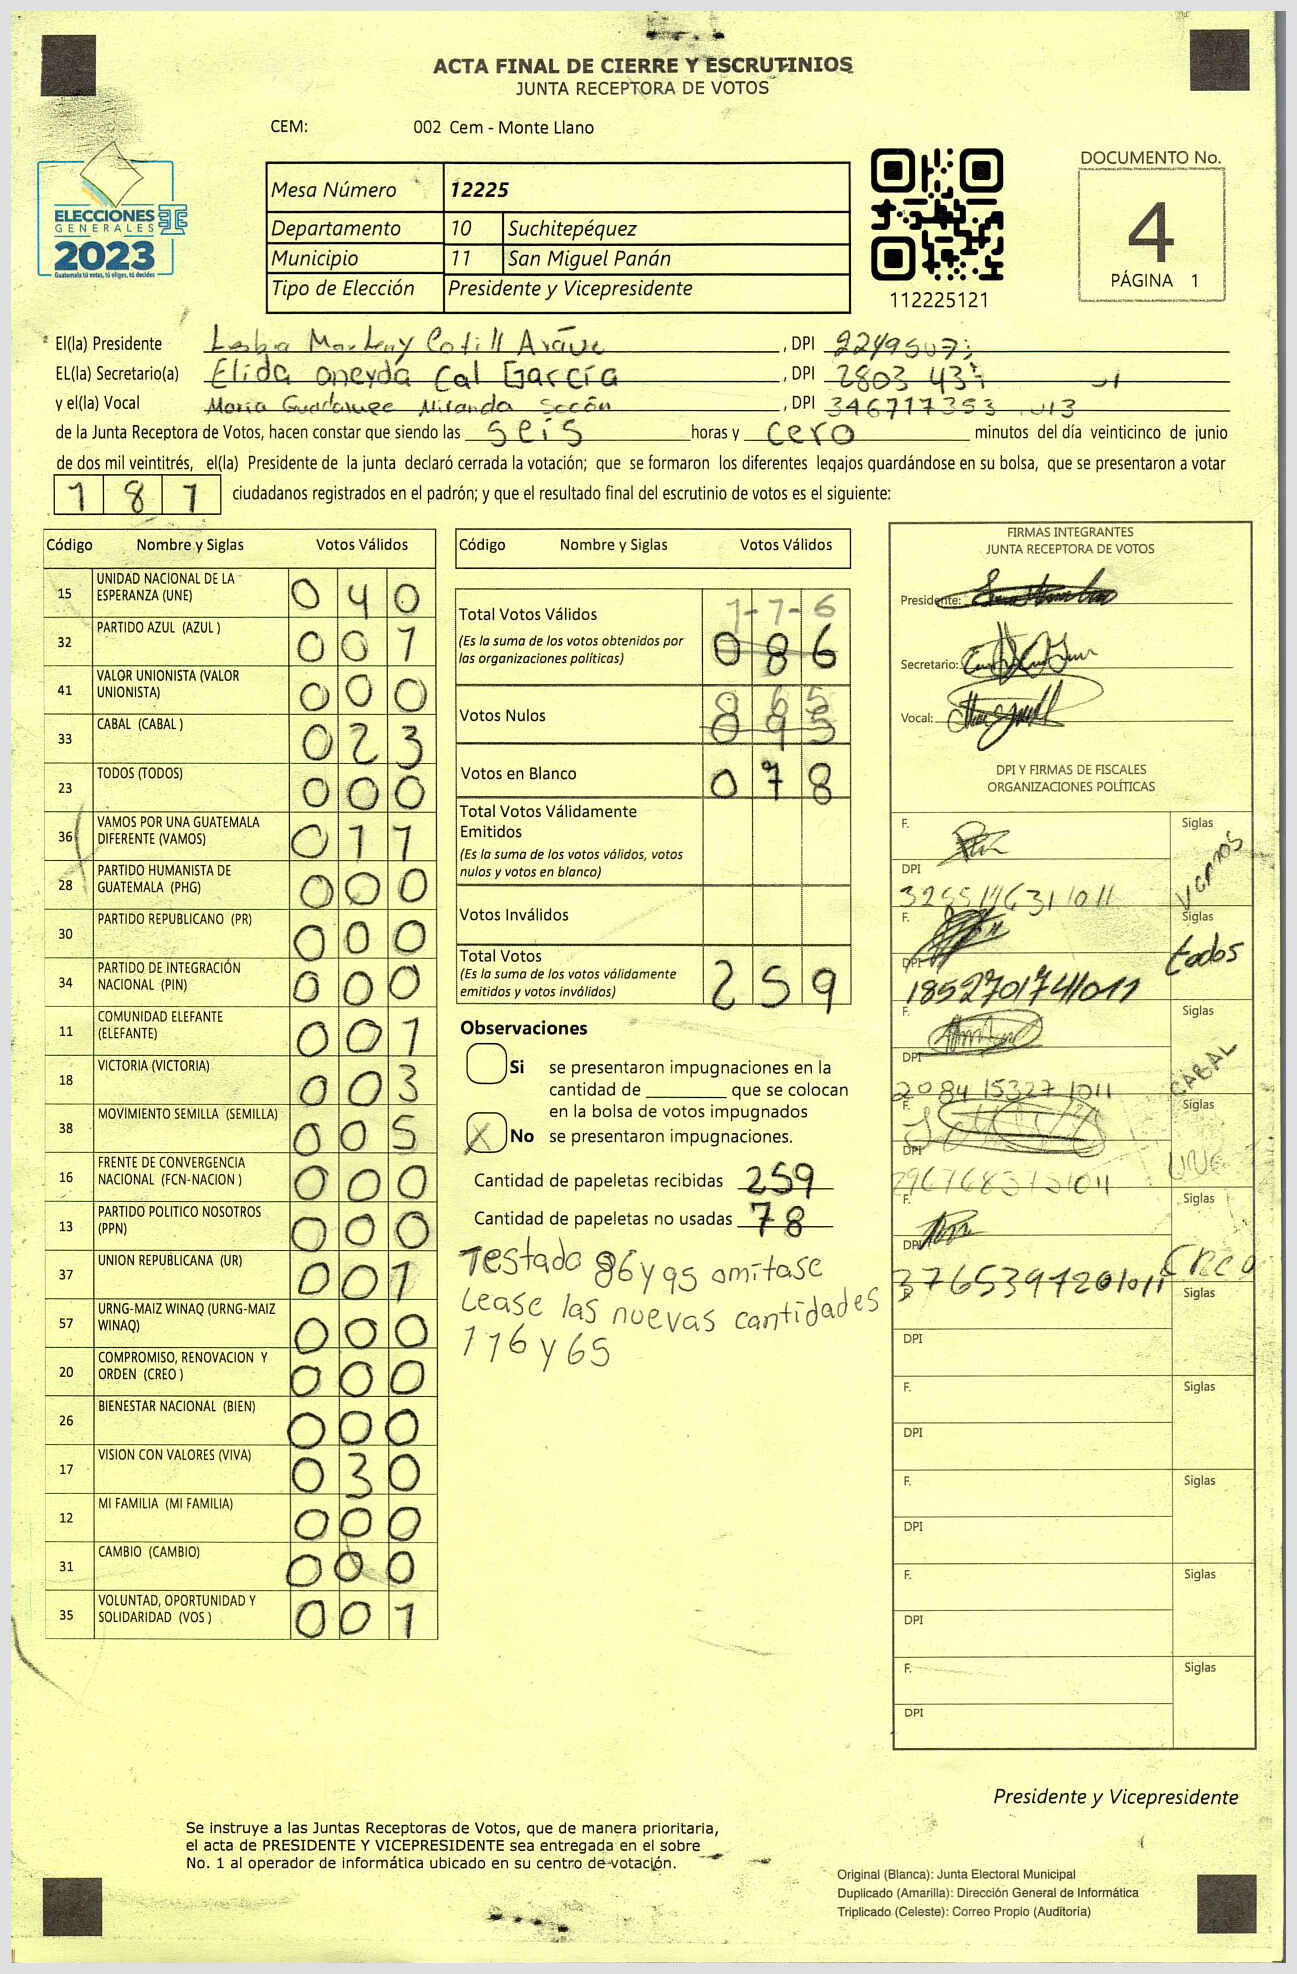 ACTA FINAL DE CIERRE Y ESCRUTINIOS
JUNTA RECEPTORA DE VOTOS
CEM: 002 Cem - Monte Llano
ELECCIONES
GENERALES
2023
Guatemala tú votas, tú eliges, tú decides
Mesa Número 12225
Departamento 10 Suchitepéquez
Municipio 11 San Miguel Panán
Tipo de Elección Presidente y Vicepresidente
112225121
DOCUMENTO No.
4
PÁGINA 1
El(la) Presidente , DPI
EL(la) Secretario(a) Elida oneyda Cal García , DPI 2803
y el(la) Vocal Maria Guadalupe Miranda , DPI 346717353
de la Junta Receptora de Votos, hacen constar que siendo las seis horas y cero minutos del día veinticinco de junio
de dos mil veintitrés, el(la) Presidente de la junta declaró cerrada la votación; que se formaron los diferentes legajos guardándose en su bolsa, que se presentaron a votar
181 ciudadanos registrados en el padrón; y que el resultado final del escrutinio de votos es el siguiente:
Código Nombre y Siglas Votos Válidos
15 UNIDAD NACIONAL DE LA ESPERANZA (UNE) 040
32 PARTIDO AZUL (AZUL ) 001
41 VALOR UNIONISTA (VALOR UNIONISTA) 000
33 CABAL (CABAL ) 023
23 TODOS (TODOS) 000
36 VAMOS POR UNA GUATEMALA DIFERENTE (VAMOS) 011
28 PARTIDO HUMANISTA DE GUATEMALA (PHG) 000
30 PARTIDO REPUBLICANO (PR) 000
34 PARTIDO DE INTEGRACIÓN NACIONAL (PIN) 000
11 COMUNIDAD ELEFANTE (ELEFANTE) 001
18 VICTORIA (VICTORIA) 003
38 MOVIMIENTO SEMILLA (SEMILLA) 005
16 FRENTE DE CONVERGENCIA NACIONAL (FCN-NACION ) 000
13 PARTIDO POLITICO NOSOTROS (PPN) 000
37 UNION REPUBLICANA (UR) 001
57 URNG-MAIZ WINAQ (URNG-MAIZ WINAQ) 000
20 COMPROMISO, RENOVACION Y ORDEN (CREO ) 000
26 BIENESTAR NACIONAL (BIEN) 000
17 VISION CON VALORES (VIVA) 030
12 MI FAMILIA (MI FAMILIA) 000
31 CAMBIO (CAMBIO) 000
35 VOLUNTAD, OPORTUNIDAD Y SOLIDARIDAD (VOS ) 001
Código Nombre y Siglas Votos Válidos
1-1-6
Total Votos Válidos 086
(Es la suma de los votos obtenidos por
las organizaciones políticas)
065
Votos Nulos 095
Votos en Blanco 078
Total Votos Válidamente
Emitidos
(Es la suma de los votos válidos, votos
nulos y votos en blanco)
Votos Inválidos
Total Votos 259
(Es la suma de los votos válidamente
emitidos y votos inválidos)
Observaciones
Si se presentaron impugnaciones en la
cantidad de que se colocan
en la bolsa de votos impugnados
X No se presentaron impugnaciones.
Cantidad de papeletas recibidas 259
Cantidad de papeletas no usadas 78
Testado 86 y 95 omitase
Lease las nuevas cantidades
116 y 65
FIRMAS INTEGRANTES
JUNTA RECEPTORA DE VOTOS
Presidente:
Secretario:
Vocal:
DPI Y FIRMAS DE FISCALES
ORGANIZACIONES POLÍTICAS
F. Siglas Vamos
DPI
F. Siglas todos
DPI 1852701741011
F. Siglas CABAL
DPI 2084153271011
F. Siglas UNE
DPI
F. Siglas Creo
DPI 3765397201011
F. Siglas
DPI
F. Siglas
DPI
F. Siglas
DPI
F. Siglas
DPI
F. Siglas
DPI
Presidente y Vicepresidente
Se instruye a las Juntas Receptoras de Votos, que de manera prioritaria,
el acta de PRESIDENTE Y VICEPRESIDENTE sea entregada en el sobre
No. 1 al operador de informática ubicado en su centro de votación.
Original (Blanca): Junta Electoral Municipal
Duplicado (Amarilla): Dirección General de Informática
Triplicado (Celeste): Correo Propio (Auditoría)